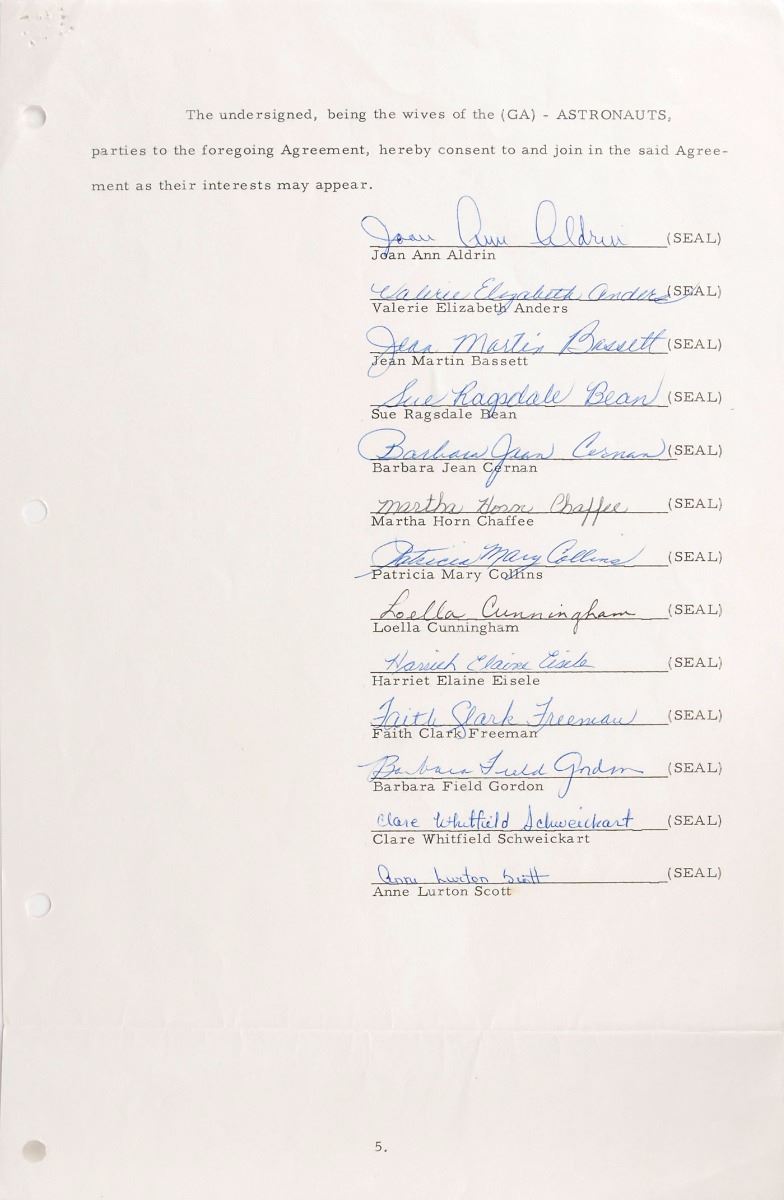 The undersigned, being the wives of the (GA) - ASTRONAUTS,
parties to the foregoing Agreement, hereby consent to and join in the said Agree-
ment as their interests may appear.
Joan Ann Aldrin (SEAL)
Joan Ann Aldrin
Valerie Elizabeth Anders (SEAL)
Valerie Elizabeth Anders
Jean Martin Bassett (SEAL)
Jean Martin Bassett
Sue Ragsdale Bean (SEAL)
Sue Ragsdale Bean
Barbara Jean Cernan (SEAL)
Barbara Jean Cernan
Martha Horn Chaffee (SEAL)
Martha Horn Chaffee
Patricia Mary Collins (SEAL)
Patricia Mary Collins
Loella Cunningham (SEAL)
Loella Cunningham
Harriet Elaine Eisele (SEAL)
Harriet Elaine Eisele
Faith Clark Freeman (SEAL)
Faith Clark Freeman
Barbara Field Gordon (SEAL)
Barbara Field Gordon
Clare Whitfield Schweickart (SEAL)
Clare Whitfield Schweickart
Anne Lurton Scott (SEAL)
Anne Lurton Scott
5.